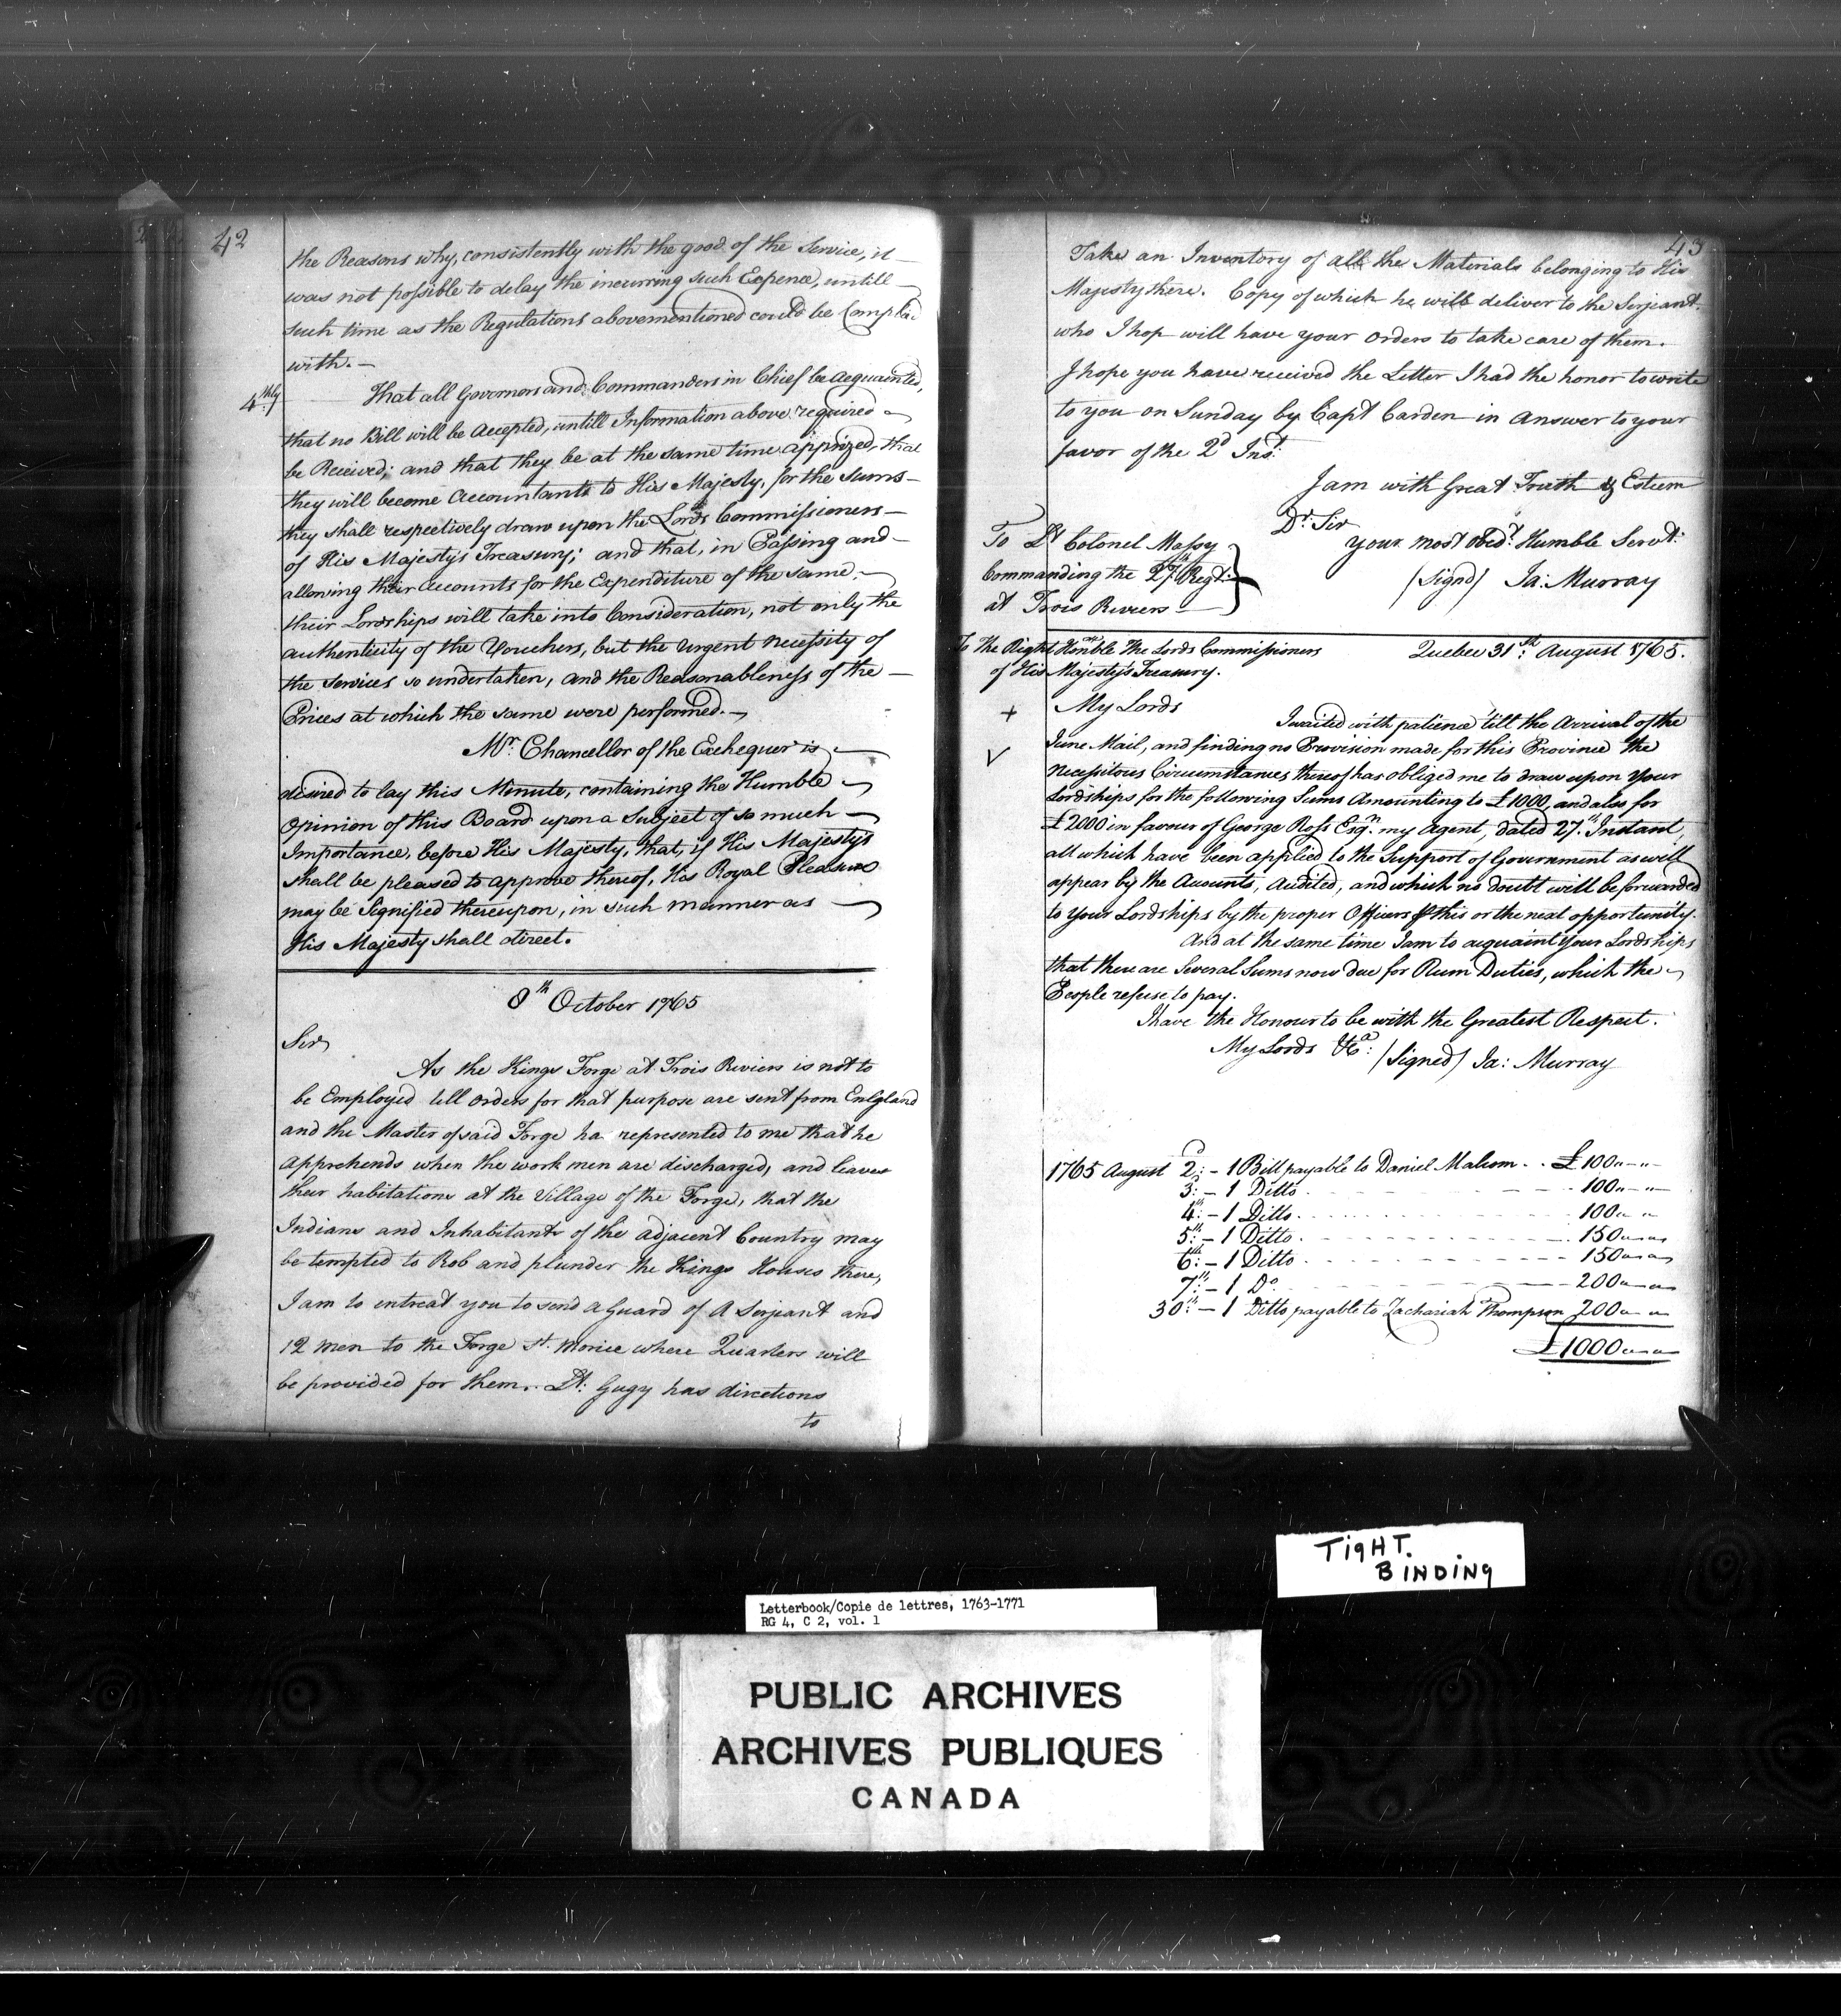 42
the Reasons why, consistently with the good of the Service, it
was not possible to delay the incurring such Expence, untill
such time as the Regulations abovementioned could be Complied
with. —
4thly That all Governors and Commanders in Chief be acquainted,
that no Bill will be Accepted, untill Information above required
be Received; and that they be at the same time apprized, that
they will become Accountants to His Majesty, for the sums
they shall respectively draw upon the Lords Commissioners
of His Majesty's Treasury; and that, in Passing and
allowing their Accounts for the Expenditure of the same,
their Lordships will take into Consideration, not only the
authenticity of the Vouchers, but the Urgent necessity of
the Services so undertaken, and the Reasonableness of the
Prices at which the same were performed. —
Mr. Chancellor of the Exchequer is
desired to lay this Minute, containing the Humble
Opinion of this Board upon a Subject of so much
Importance, before His Majesty, that, if His Majesty's
shall be pleased to approve thereof, His Royal Pleasure
may be Signified thereupon, in such manner as
His Majesty shall direct.
8th October 1765
Sir,
As the Kings Forge at Trois Riviers is not to
be Employed till orders for that purpose are sent from Enlgland
and the Master of said Forge ha represented to me that he
apprehends when the work men are discharged, and leaves
their habitations at the Village of the Forge, that the
Indians and Inhabitants of the adjacent Country may
be tempted to Rob and plunder the Kings Houses there,
I am to entreat you to send a Guard of A Serjeant and
12 men to the Forge St. Morice where Quarters will
be provided for them. Lt: Gugy has directions
to
43
Take an Inventory of all the Materials belonging to His
Majesty there. Copy of which he will deliver to the Serjeant.
who I hop will have your orders to take care of them.
I hope you have received the Letter I had the honor to write
to you on Sunday by Capt Carden in Answer to your
favor of the 2d Inst.
I am with Great Truth & Esteem
Dr. Sir
your most obedt. Humble Servt.
(Signd) Ja: Murray
To Lt Colonel Massy
Commanding the 27th Regt.
at Trois Riviers
To The Right Honble The Lords Commissioners
of His Majesty's Treasury.
Quebec 31st: August 1765.
+ My Lords
I waited with patience till the Arrival of the
V June Mail, and finding no Provision made for this Province the
Necessitous Circumstances thereof has obliged me to draw upon Your
Lordships for the following Sums Amounting to £1000, and also for
£2000 in favour of George Ross Esqr. my Agent, dated 27th. Instant,
all which have been applied to the Support of Government as will
appear by the Accounts, Audited, and which no doubt will be forwarded
to Your Lordships by the proper Officers by this or the next opportunity.
And at the same time I am to acquaint Your Lordships
that there are Several Sums now due for Rum Duties, which the
People refuse to pay.
I have the Honour to be with the Greatest Respect.
My Lords &ca: (Signed) Ja: Murray
1765 August 2d: - 1 Bill payable to Daniel Malcom . . £100 " - " -
3d: - 1 Ditto - - - 100 " - " -
4th: - 1 Ditto - - - 100 " "
5th: - 1 Ditto - - - 150 " "
6th: - 1 Ditto - - - 150 " "
7th: - 1 Do - - - 200 " "
30th: - 1 Ditto payable to Zachariah Thompson 200 " "
£1000 " "
TIGHT.
BINDING
Letterbook/Copie de lettres, 1763-1771
RG 4, C 2, vol. 1
PUBLIC ARCHIVES
ARCHIVES PUBLIQUES
CANADA